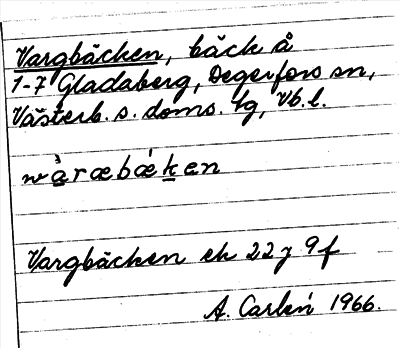 Vargbäcken, bäck å
1-7 Gladaberg, Degerfors sn,
Västerb. s. doms. tg, Vb. l.
wåræbæken
Vargbäcken ek 22 J 9f
A. Carlén 1966.